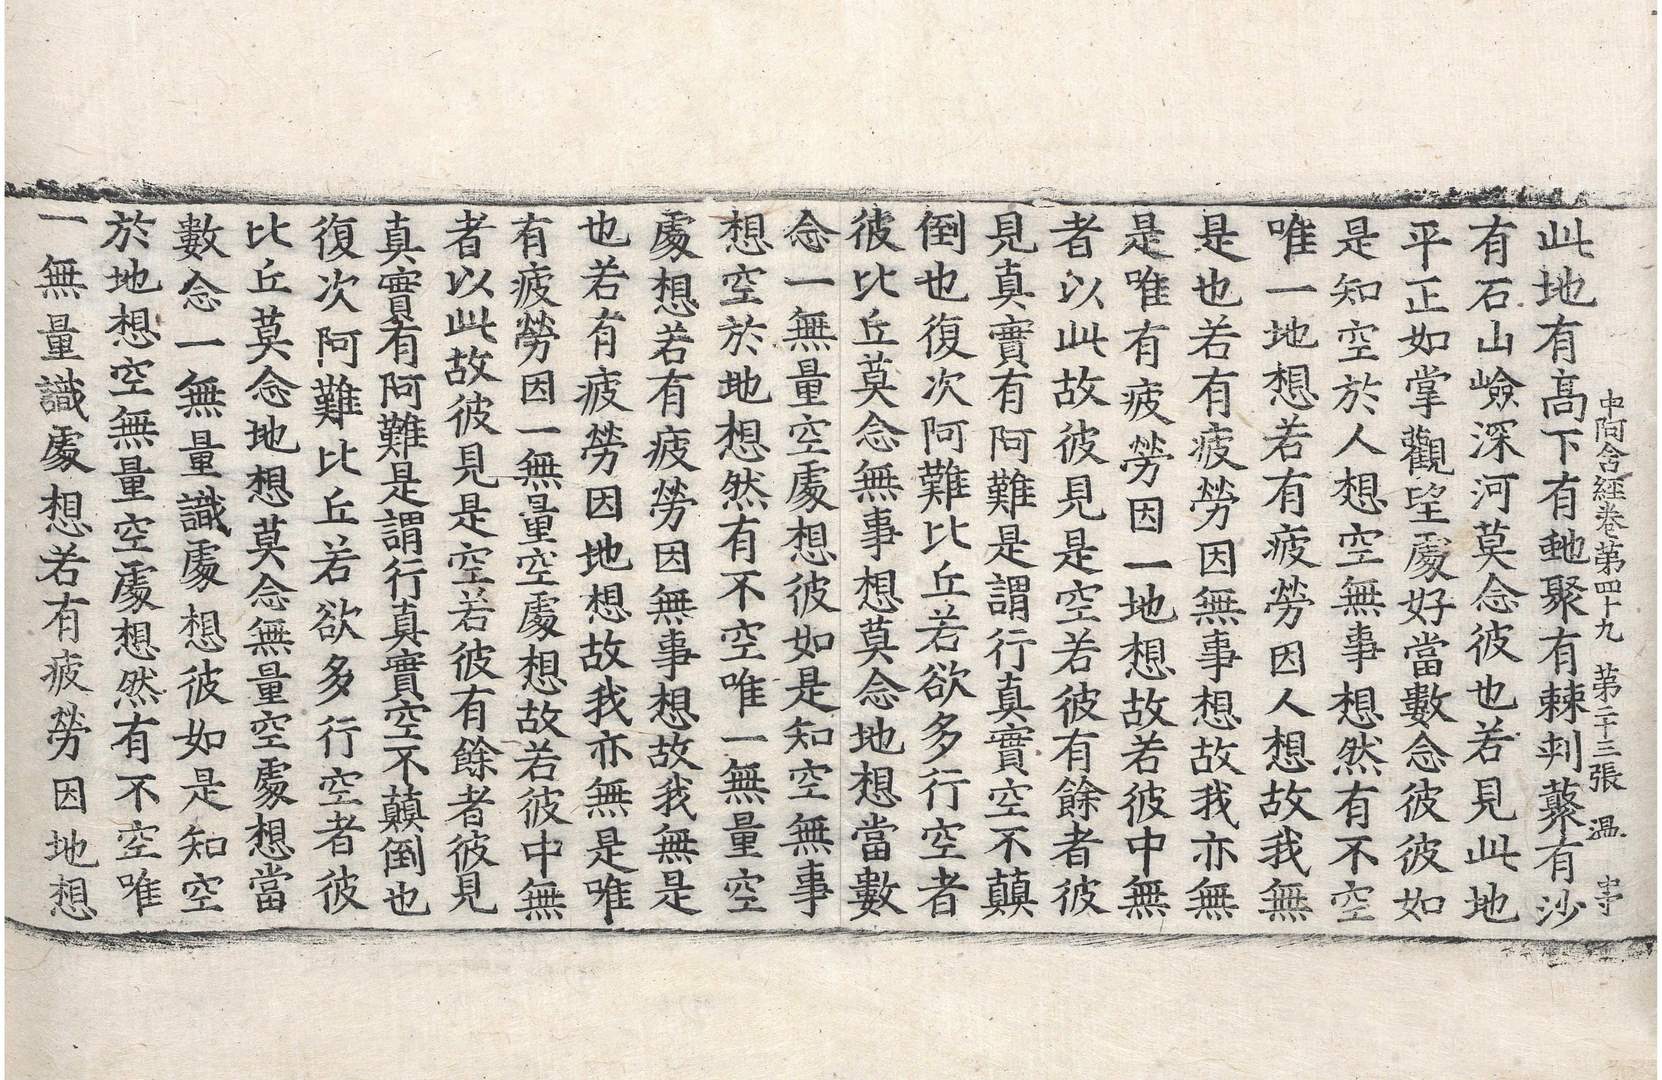 中阿含經卷第四十九 第二十三張 温
此地有高下有虵聚有棘刺藂有沙
有石山嶮深河莫念彼也若見此地
平正如掌觀望處好當數念彼彼如
是知空於人想空無事想然有不空
唯一地想若有疲勞因人想故我無
是也若有疲勞因無事想故我亦無
是唯有疲勞因一地想故若彼中無
者以此故彼見是空若彼有餘者彼
見真實有阿難是謂行真實空不顛
倒也復次阿難比丘若欲多行空者
彼比丘莫念無事想莫念地想當數
念一無量空處想彼如是知空無事
想空於地想然有不空唯一無量空
處想若有疲勞因無事想故我無是
也若有疲勞因地想故我亦無是唯
有疲勞因一無量空處想故若彼中無
者以此故彼見是空若彼有餘者彼見
真實有阿難是謂行真實空不顛倒也
復次阿難比丘若欲多行空者彼
比丘莫念地想莫念無量空處想當
數念一無量識處想彼如是知空
於地想空無量空處想然有不空唯
一無量識處想若有疲勞因地想